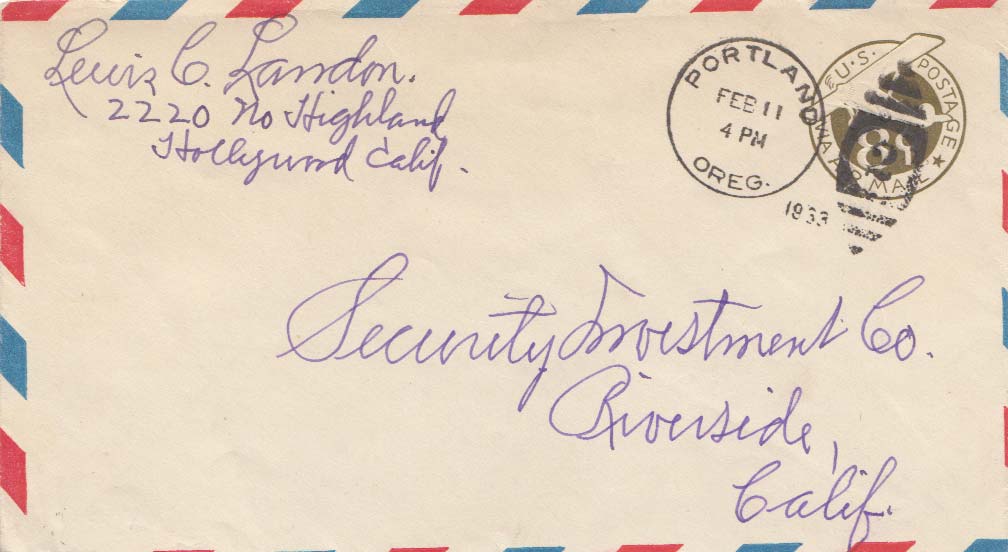 Lewis C. Landon.
2220 No Highland
Hollywood Calif.
PORTLAND
FEB 11
4 PM
OREG.
1933
U.S. POSTAGE
VIA AIR MAIL
8¢
Security Investment Co.
Riverside,
Calif.